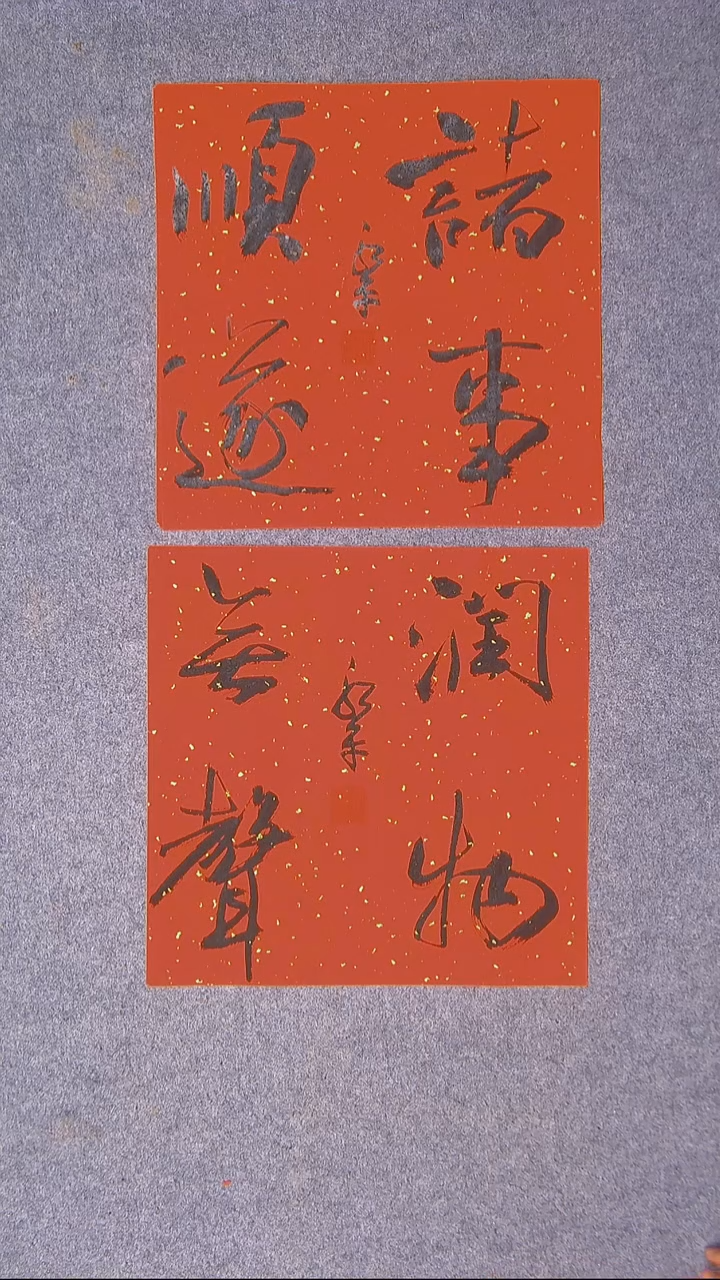 諸事
順遂
潤物
無聲